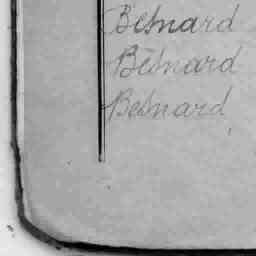 Besnard
Besnard
Besnard